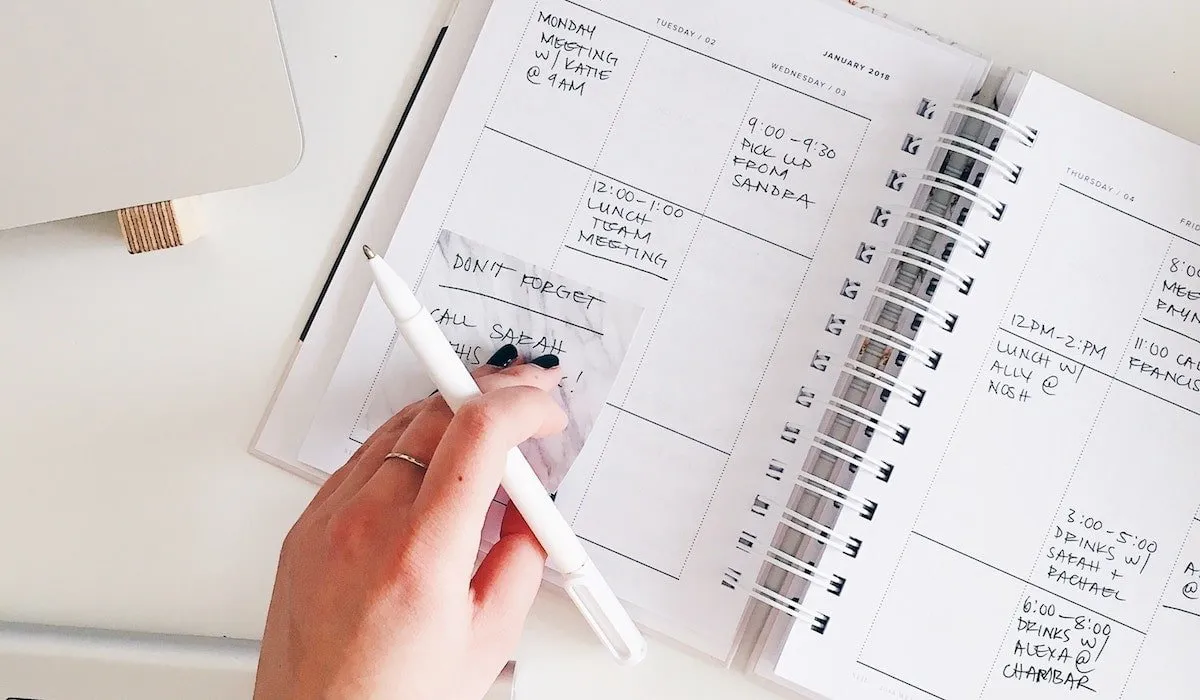 MONDAY
MEETING
W/ KATIE
@ 9AM
TUESDAY / 02
JANUARY 2018
WEDNESDAY / 03
9:00-9:30
PICK UP
FROM
SANDRA
12:00-1:00
LUNCH
TEAM
MEETING
DON'T FORGET
CALL SARAH
THURSDAY / 04
12PM-2:PM
LUNCH W/
ALLY @
NOSH
11:00
3:00-5:00
DRINKS W/
SARAH +
RACHAEL
6:00-8:00
DRINKS W/
ALEXA @
CHAMBAR